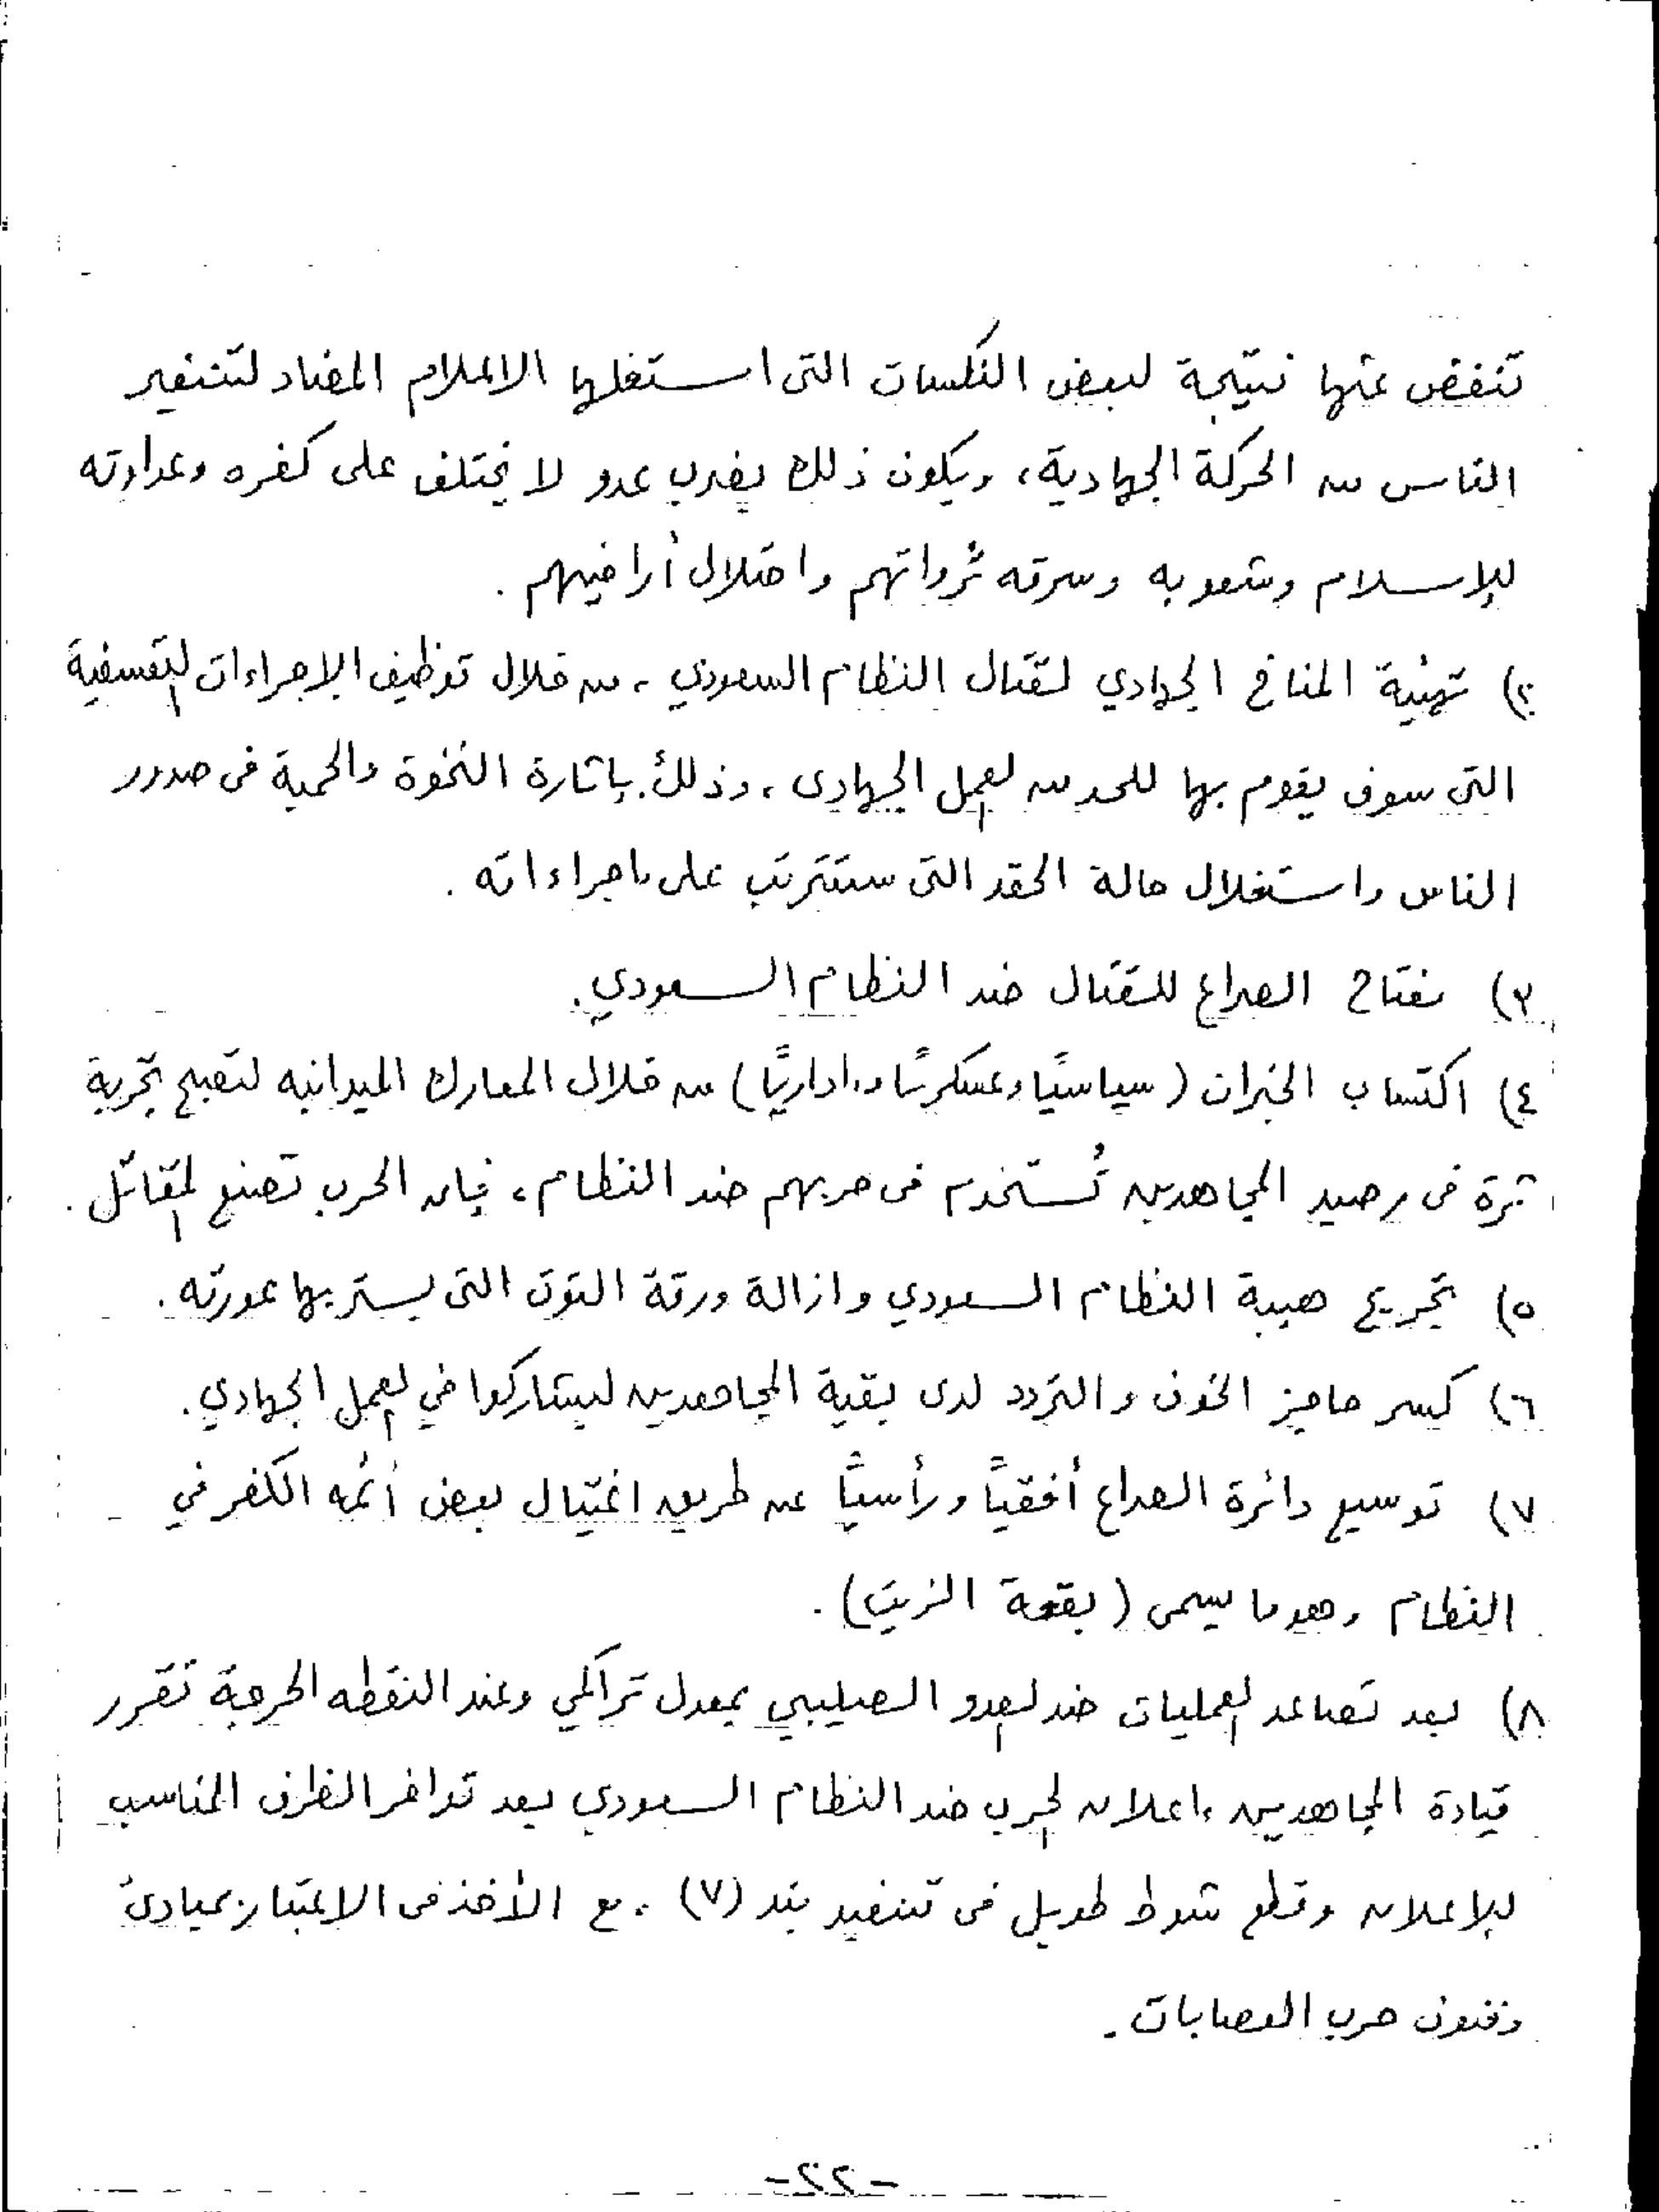 تنفض عنها نتيجة لبعض النكسات التى استغلها الاعلام المضاد لتنفير
الناس من الحركة الجهادية، ويكون ذلك بضرب عدو لا يختلف على كفره وعداوته
للإسلام وشعوبه وسرقه ثرواتهم واحتلال أراضيهم .
٢) تهيئة المناخ الجهادي لقتال النظام السعودي ، من خلال توظيف الإجراءات التعسفية
التى سوف يقوم بها للحد من العمل الجهادى ، وذلك بإثارة النخوة والحمية فى صدور
الناس واستغلال حالة الحقد التى ستترتب على إجراءاته .
٣) مفتاح الصراع للقتال ضد النظام السعودي.
٤) اكتساب الخبرات ( سياسيًا وعسكريًا وإداريًا ) من خلال المعارك الميدانيه لتصبح تجربة
ثرة فى رصيد المجاهدين تُستخدم فى حربهم ضد النظام ، فإن الحرب تصنع المقاتل .
٥) تجريح هيبة النظام السعودي وازالة ورقة التوت التى يستر بها عورته .
٦) كسر حاجز الخوف والتردد لدى بقية المجاهدين ليشاركوا في العمل الجهادي .
٧) توسيع دائرة الصراع أفقياً ورأسياً عن طريق اغتيال بعض أئمه الكفر في
النظام وهو ما يسمى ( بقعة الزيت ) .
٨) بعد تصاعد العمليات ضد العدو الصليبي بمعدل تراكمي وعند النقطه الحرجة تقرر
قيادة المجاهدين إعلان الحرب ضد النظام السعودي بعد توافر الظرف المناسب
للإعلان وقطع شوط طويل فى تنفيذ بند (٧) ، مع الأخذ فى الاعتبار بمبادئ
وفنون حرب العصابات .
-٢٢-